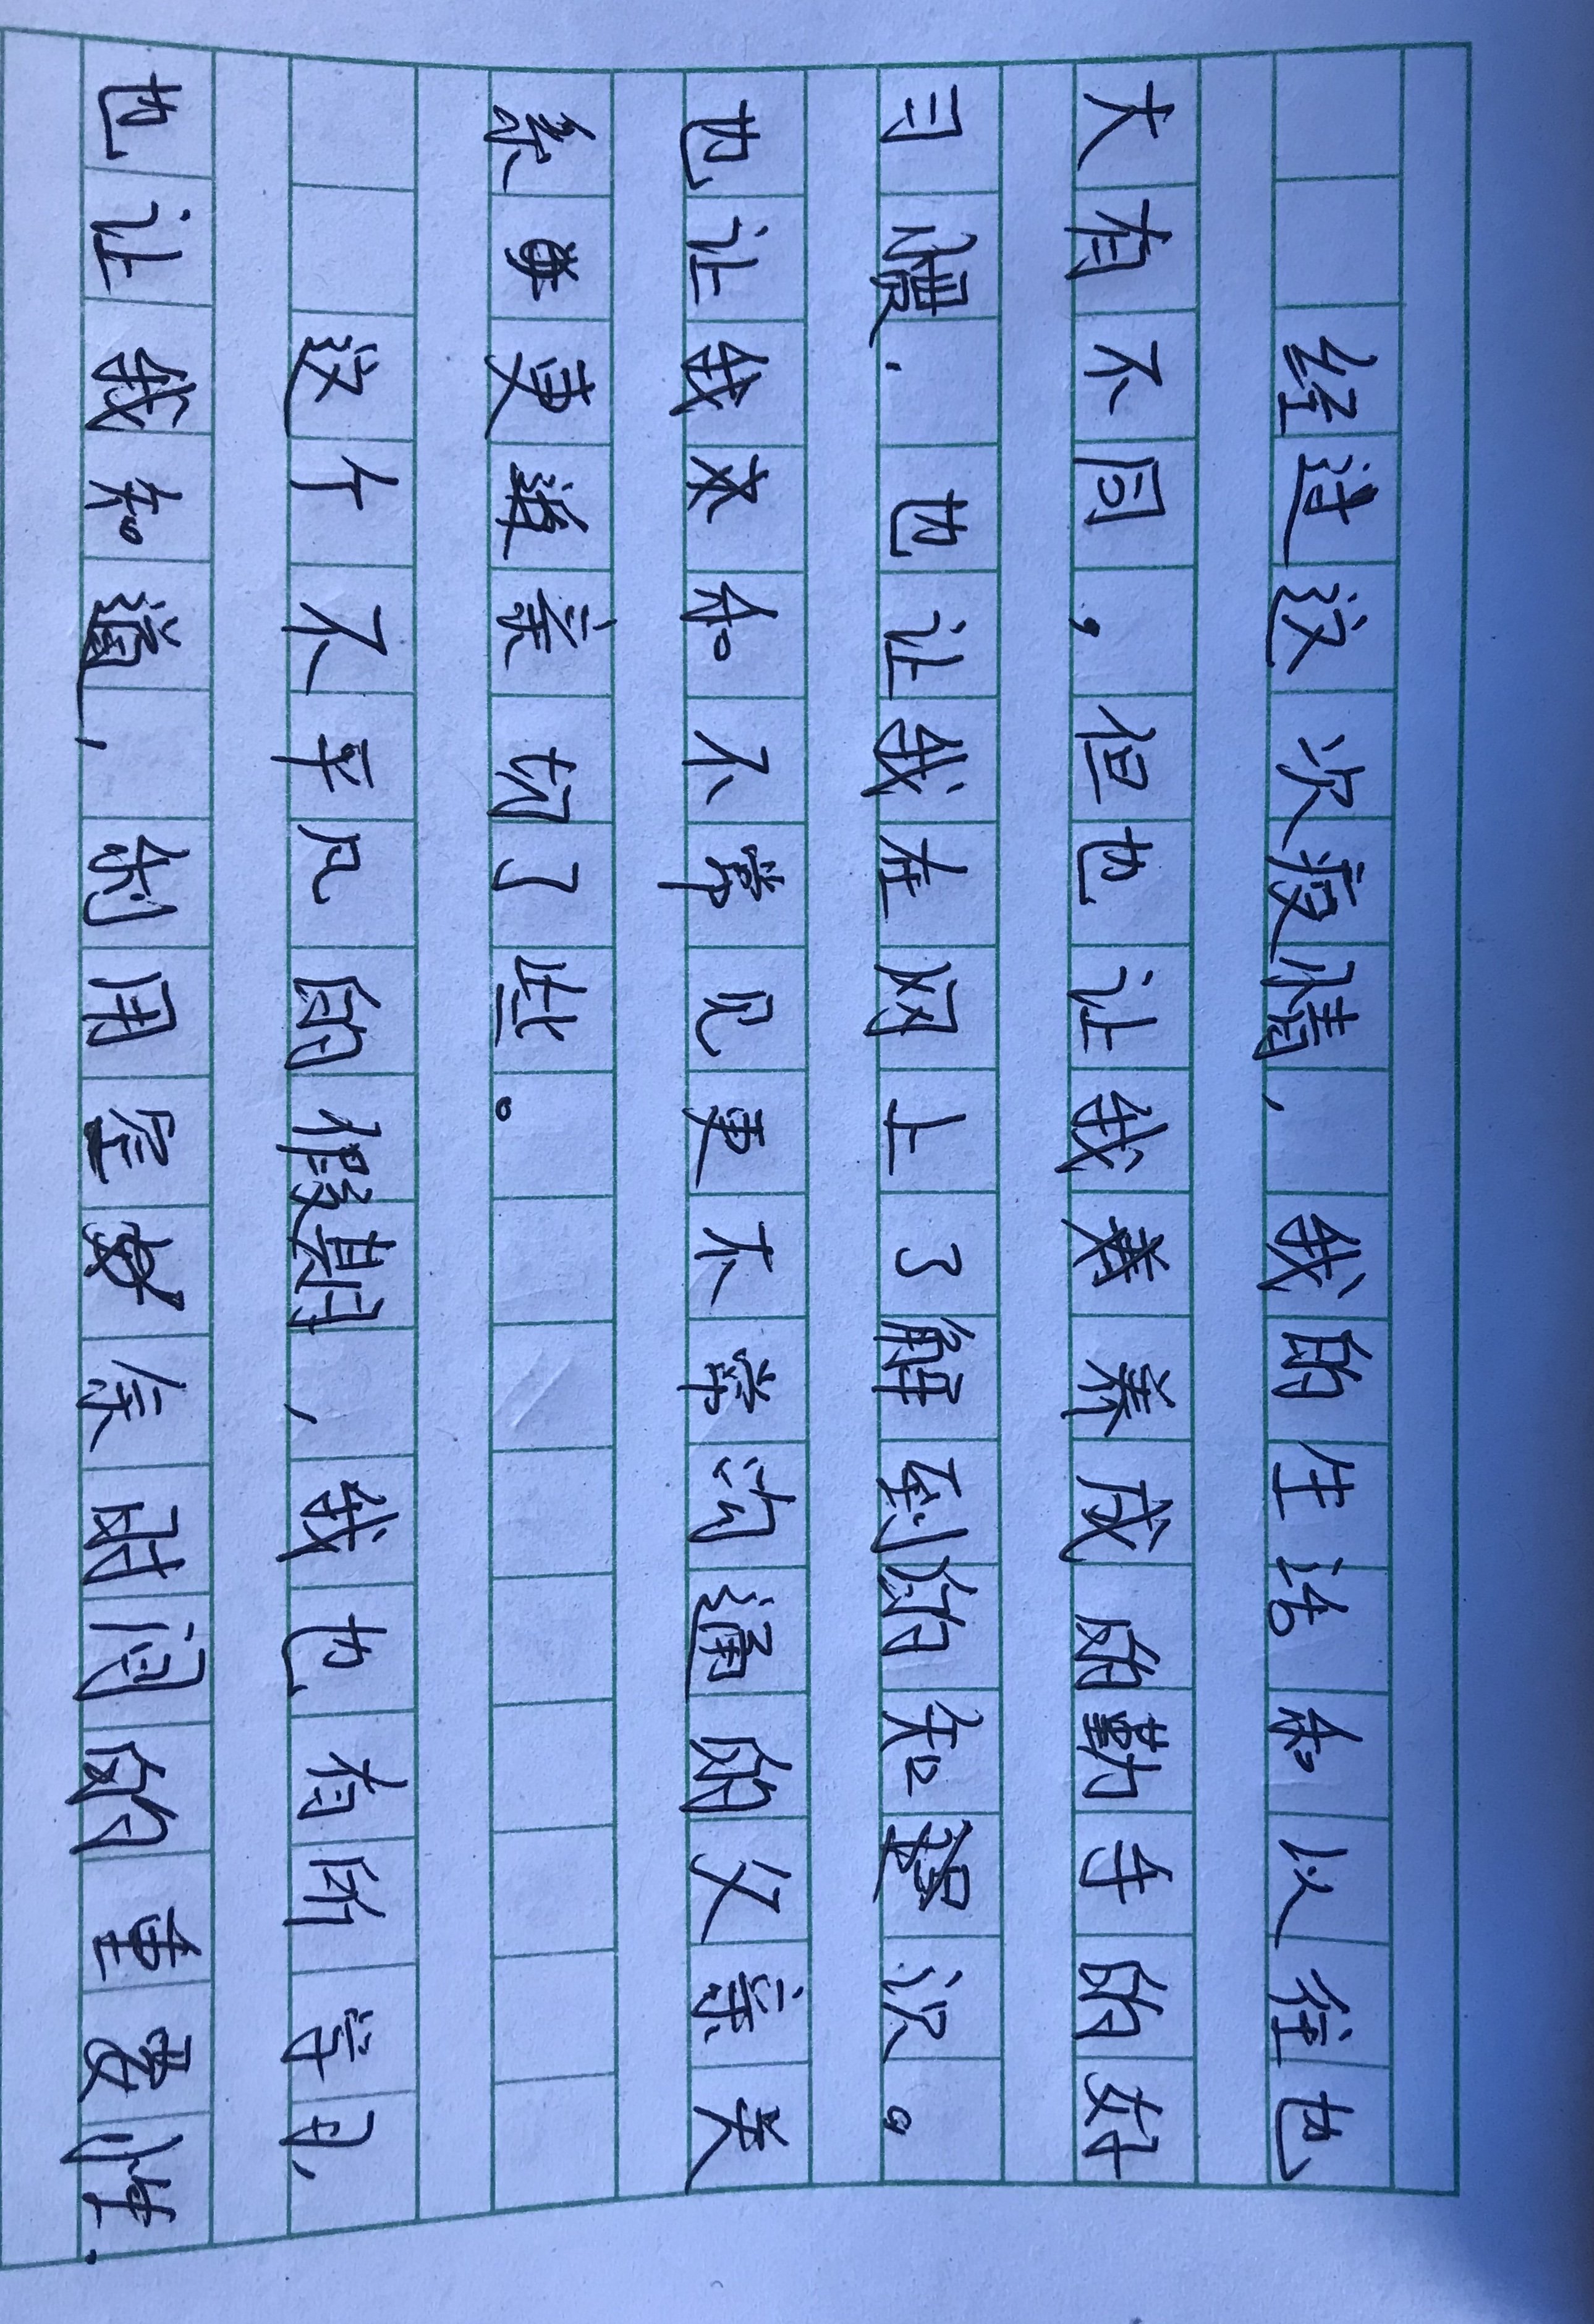 经过这次疫情，我的生活和以往也
大有不同，但也让我养成的勤于的好
习惯，也让我在网上了解到的知识。
也让我和不常见更不常沟通的父亲关
系更亲切了些。
这个不平凡的假期，我也有所学习，
也让我知道，利用空余时间的重要性.